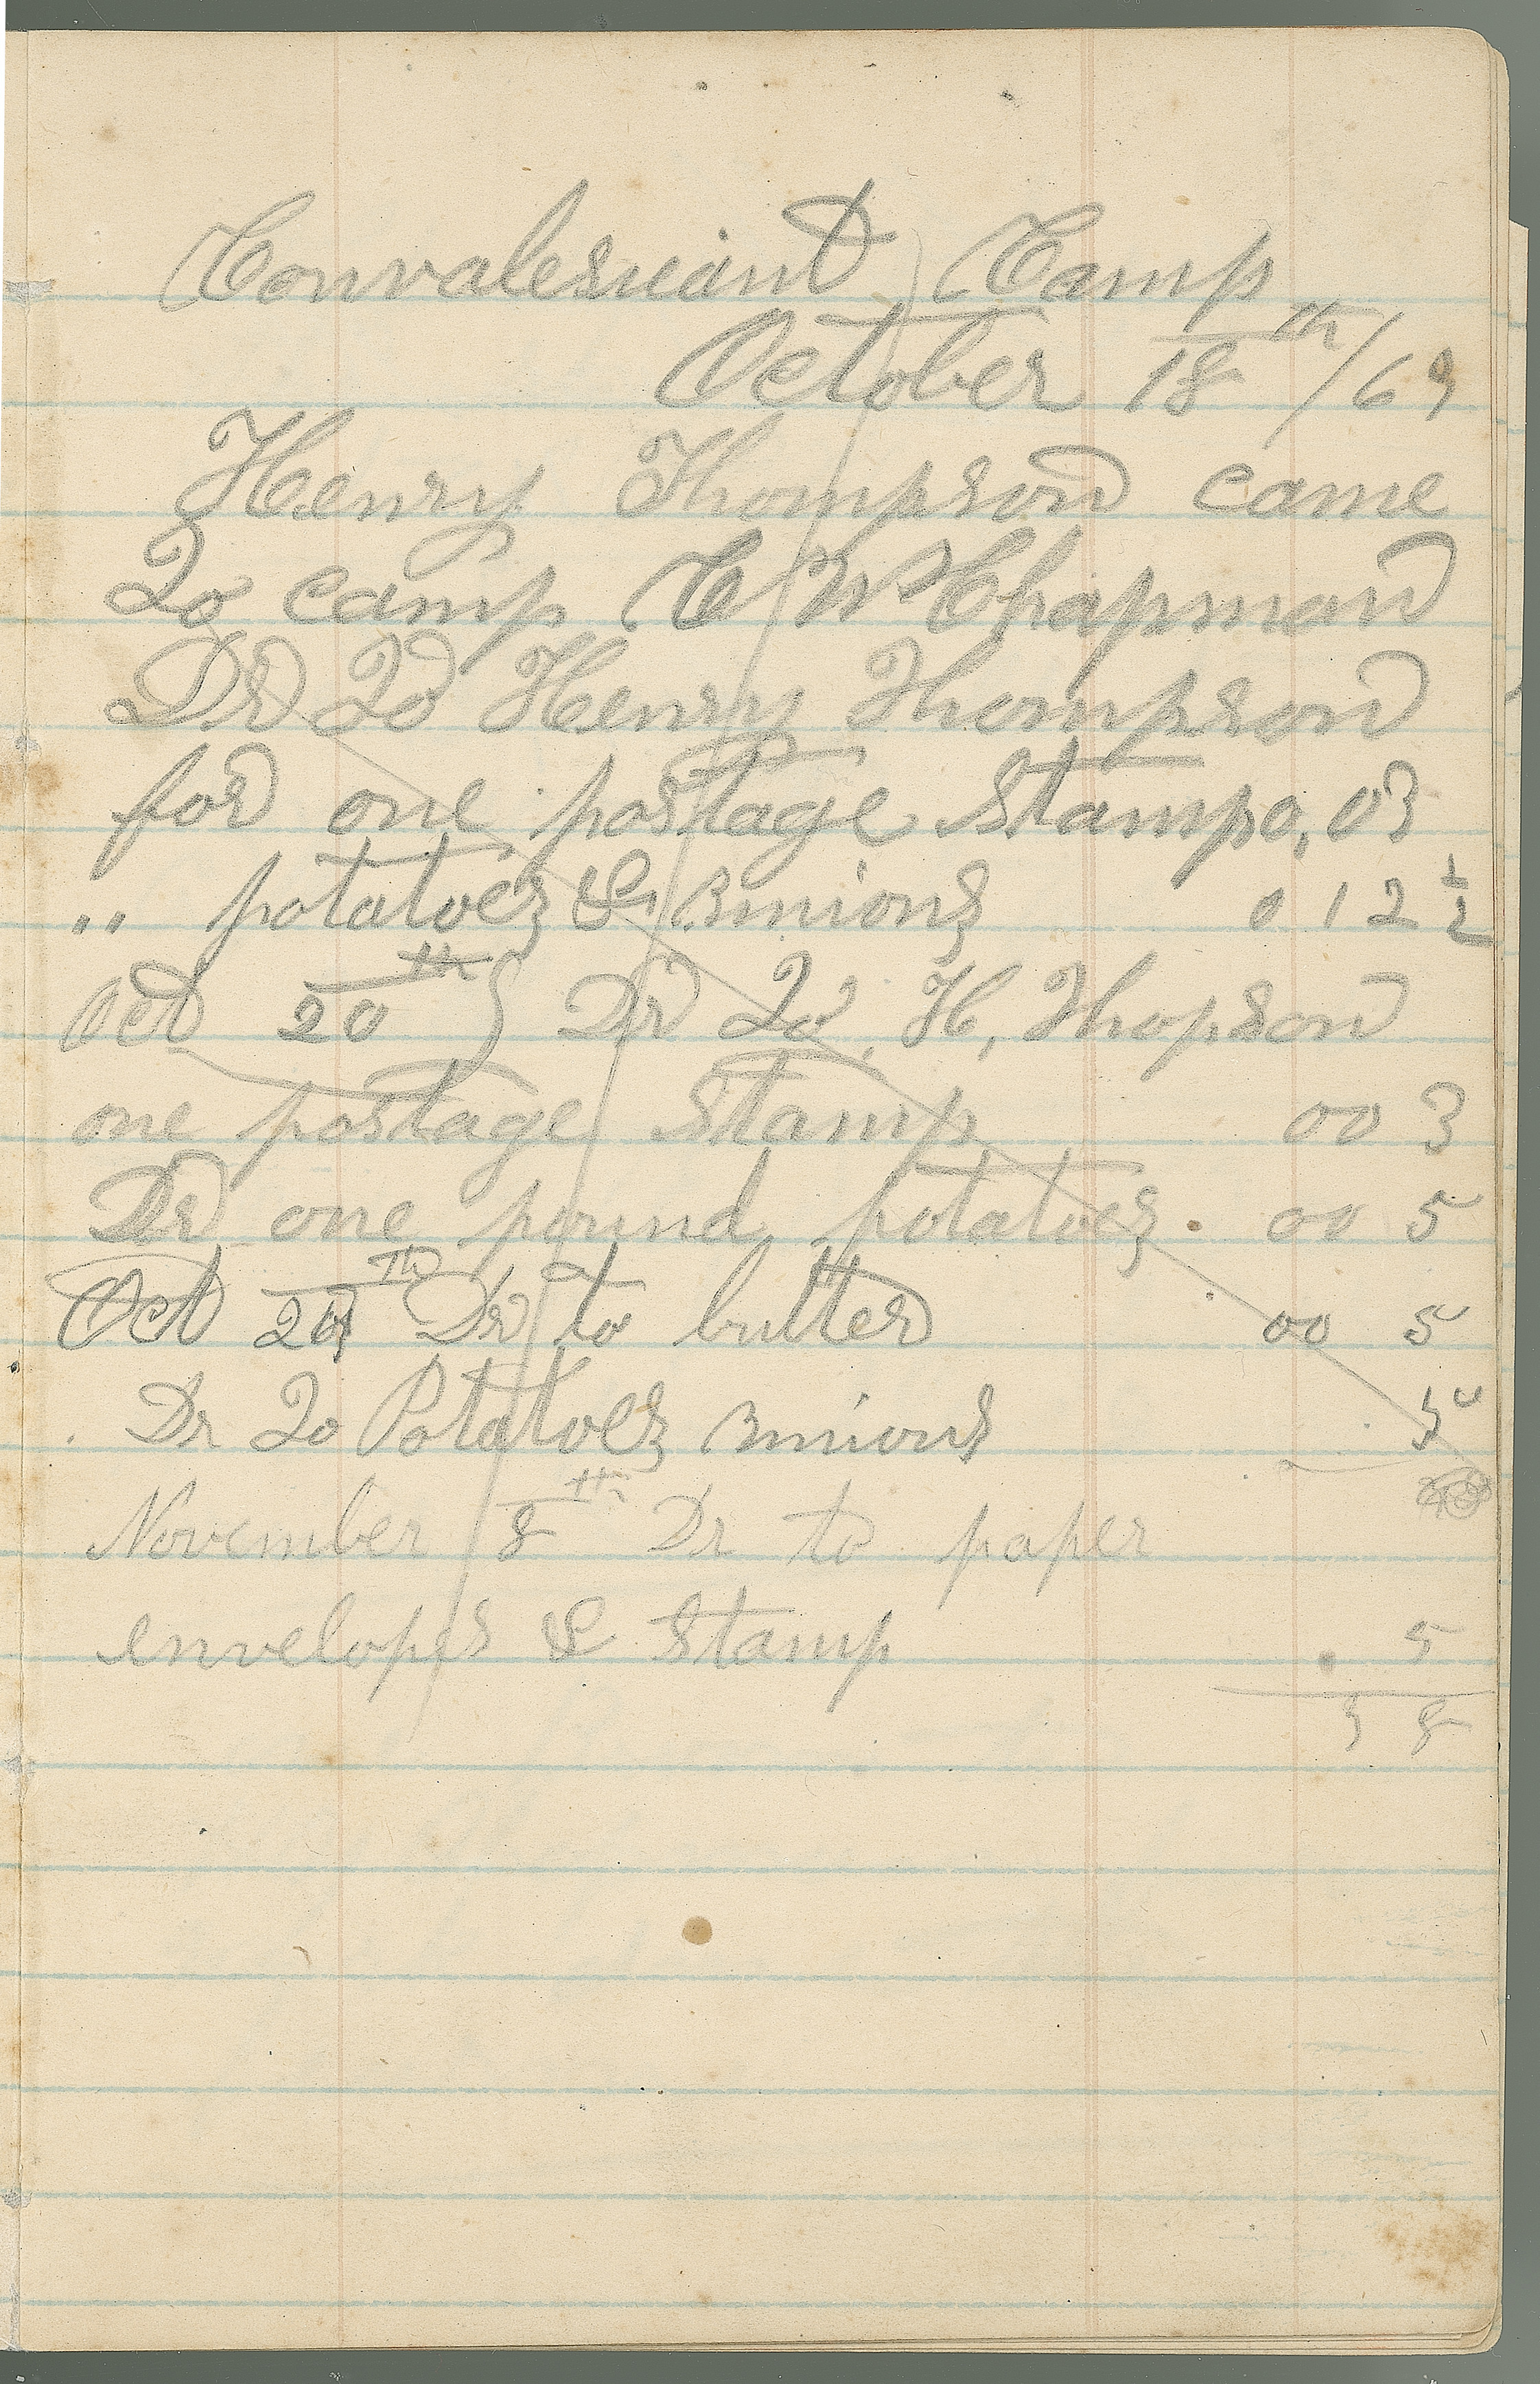 Convalesciant Camp
October 18th/63
Henry Thompson came
To camp C W Chapman
Dr To Henry Thompson
for one postage Stamp 0,03
" potatoes & onions 0 12 1/2
Oct 20th } Dr To, H, Thopson
one postage Stamp 00 3
Dr one pound potatoes . 00 5
Oct Th Dr to butter 00 5
Dr To Potatoes onions
November 8th Dr to paper
envelopes & Stamp . 5
3 8